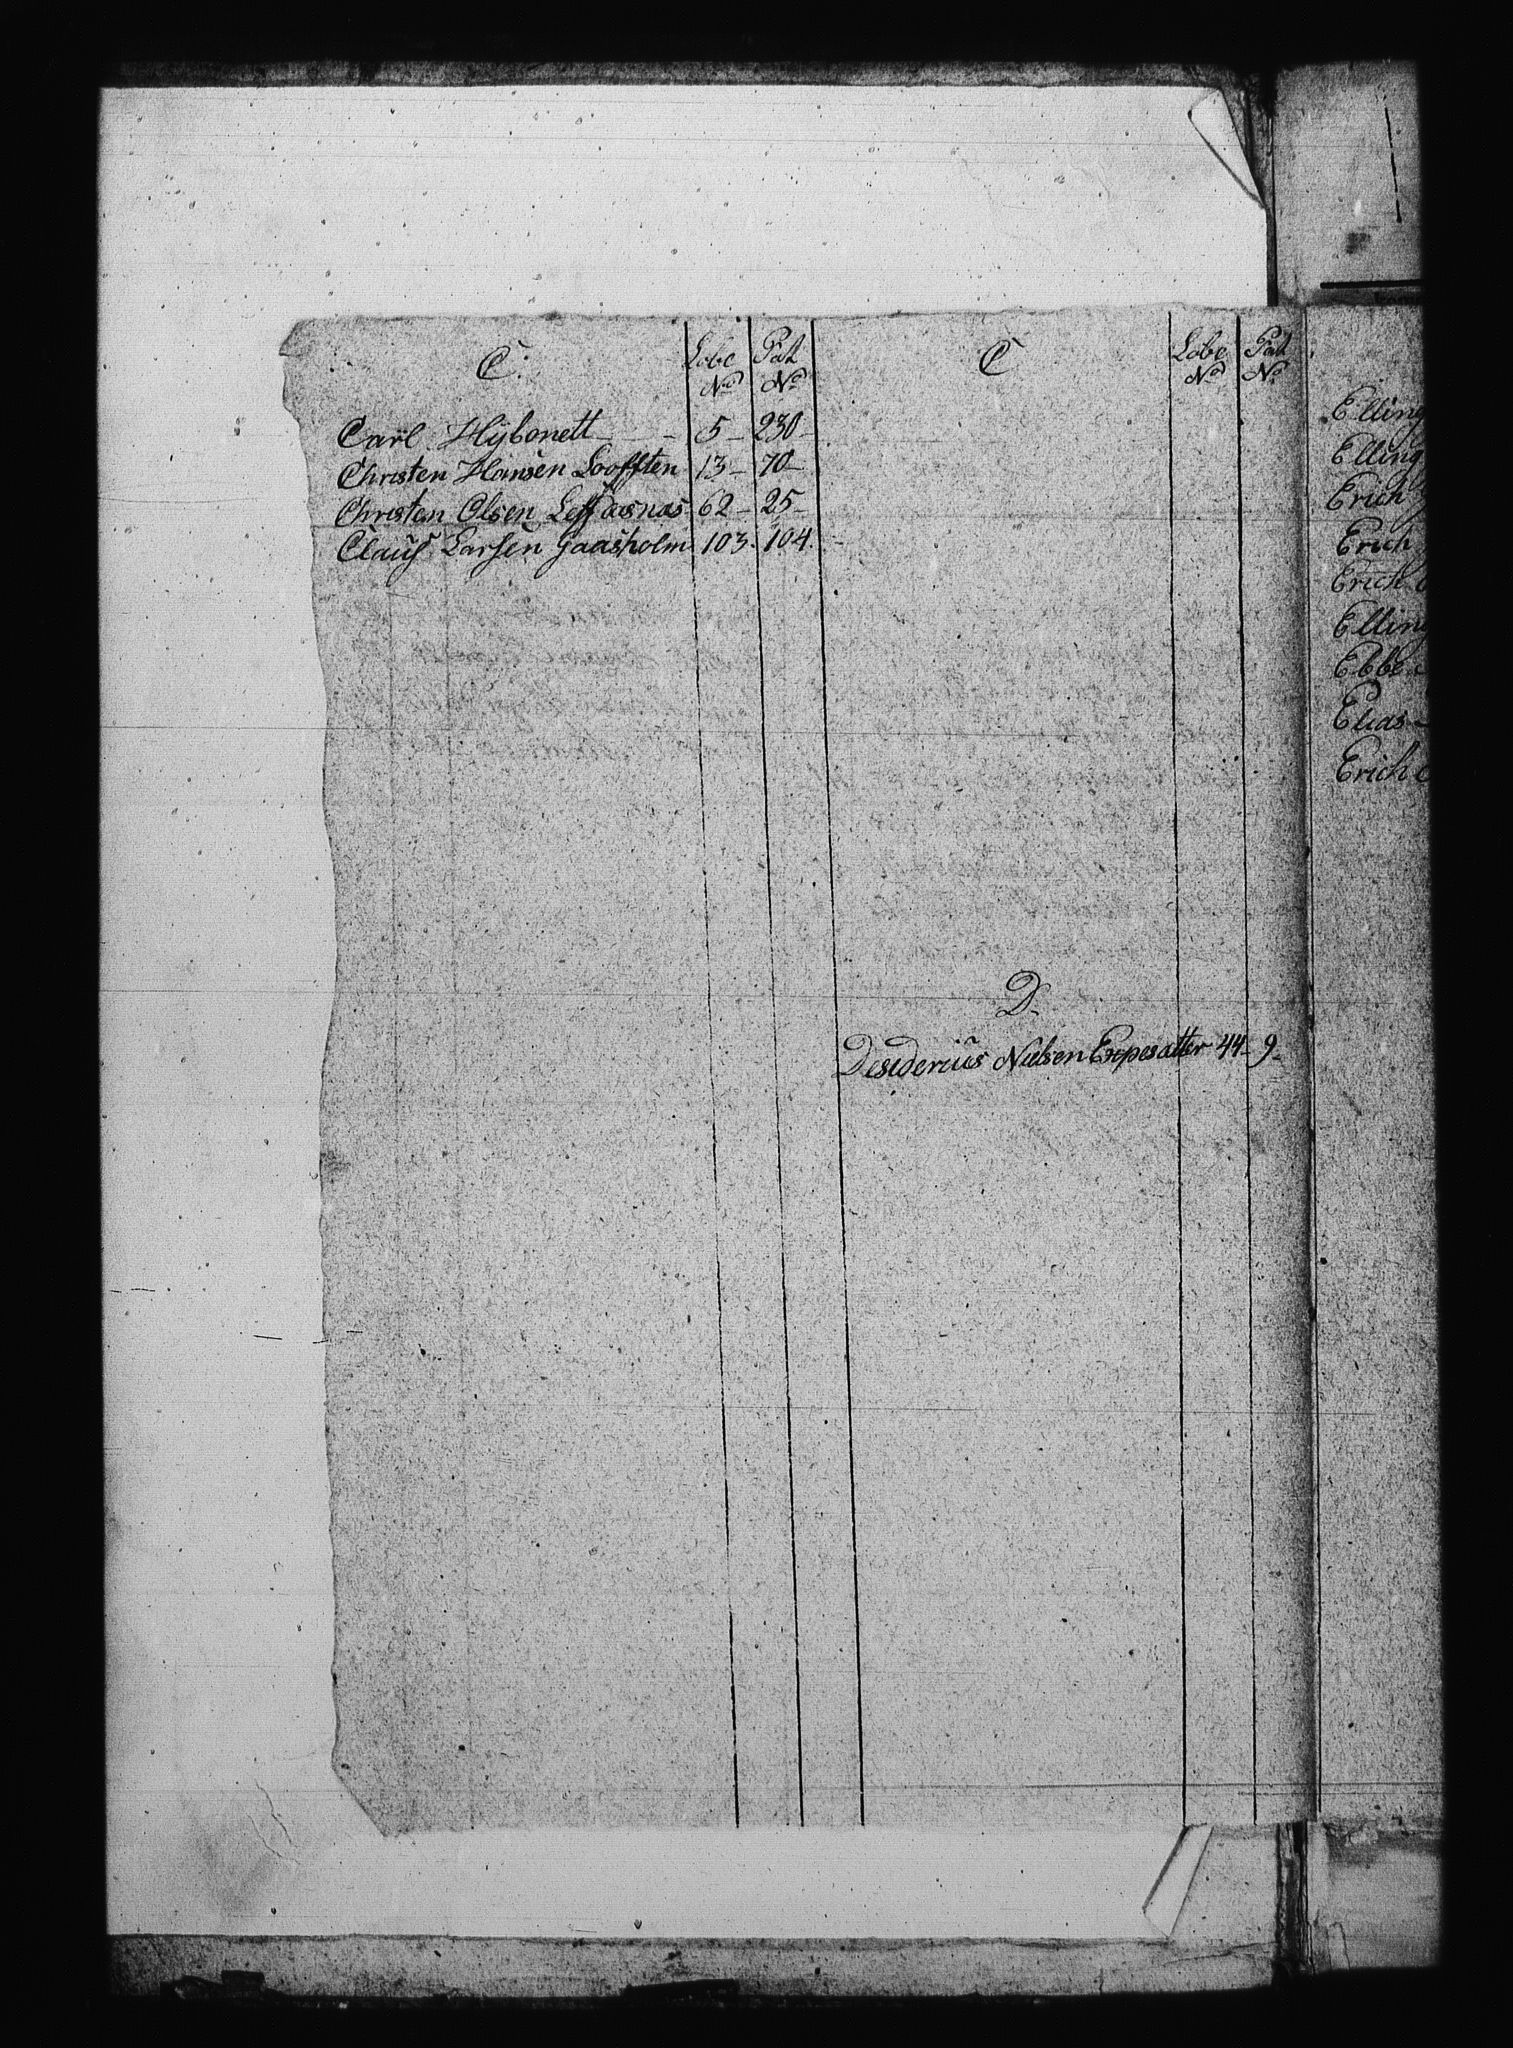 C.
Lobe No
Pat No
Carl Hÿbonett 5 - 230 -
Christen Hansen Loofften 13 - 70 -
Christen Olsen Leffdasnas 62 - 25 -
Clauſ Larſen Gaasholm 103. 104.
C
Lobe No
Pat No
D.
Desiderius Nielsen Erpesatter 44 - 9 -
Elling
Elling
Erich
Erich
Erich
Elling
Ebbe
Elias
Erich